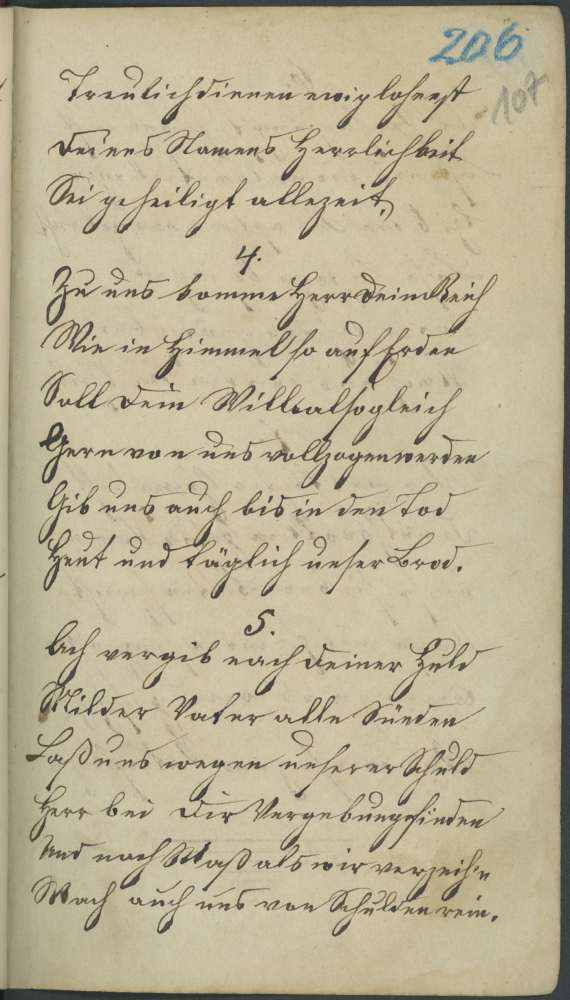 206
107
Treulich dienen ewig lohnest
Deines Namens Herrlichkeit
Sei geheiligt allezeit.
4.
Zu uns komme Herr dein Reich
Wie in Himmel so auf Erden
Soll dein Will alsogleich
Gern von uns vollzogen werden
Gib uns auch bis in den Tod
Heut und täglich unser Brod.
5.
Ach vergib nach deiner Huld
Milder Vater alle Sünden
Laß uns wegen unserer Schuld
Herr bei dir Vergebung finden
Und nach Maß als wir verzeih'n
Mach auch uns von Schulden rein.